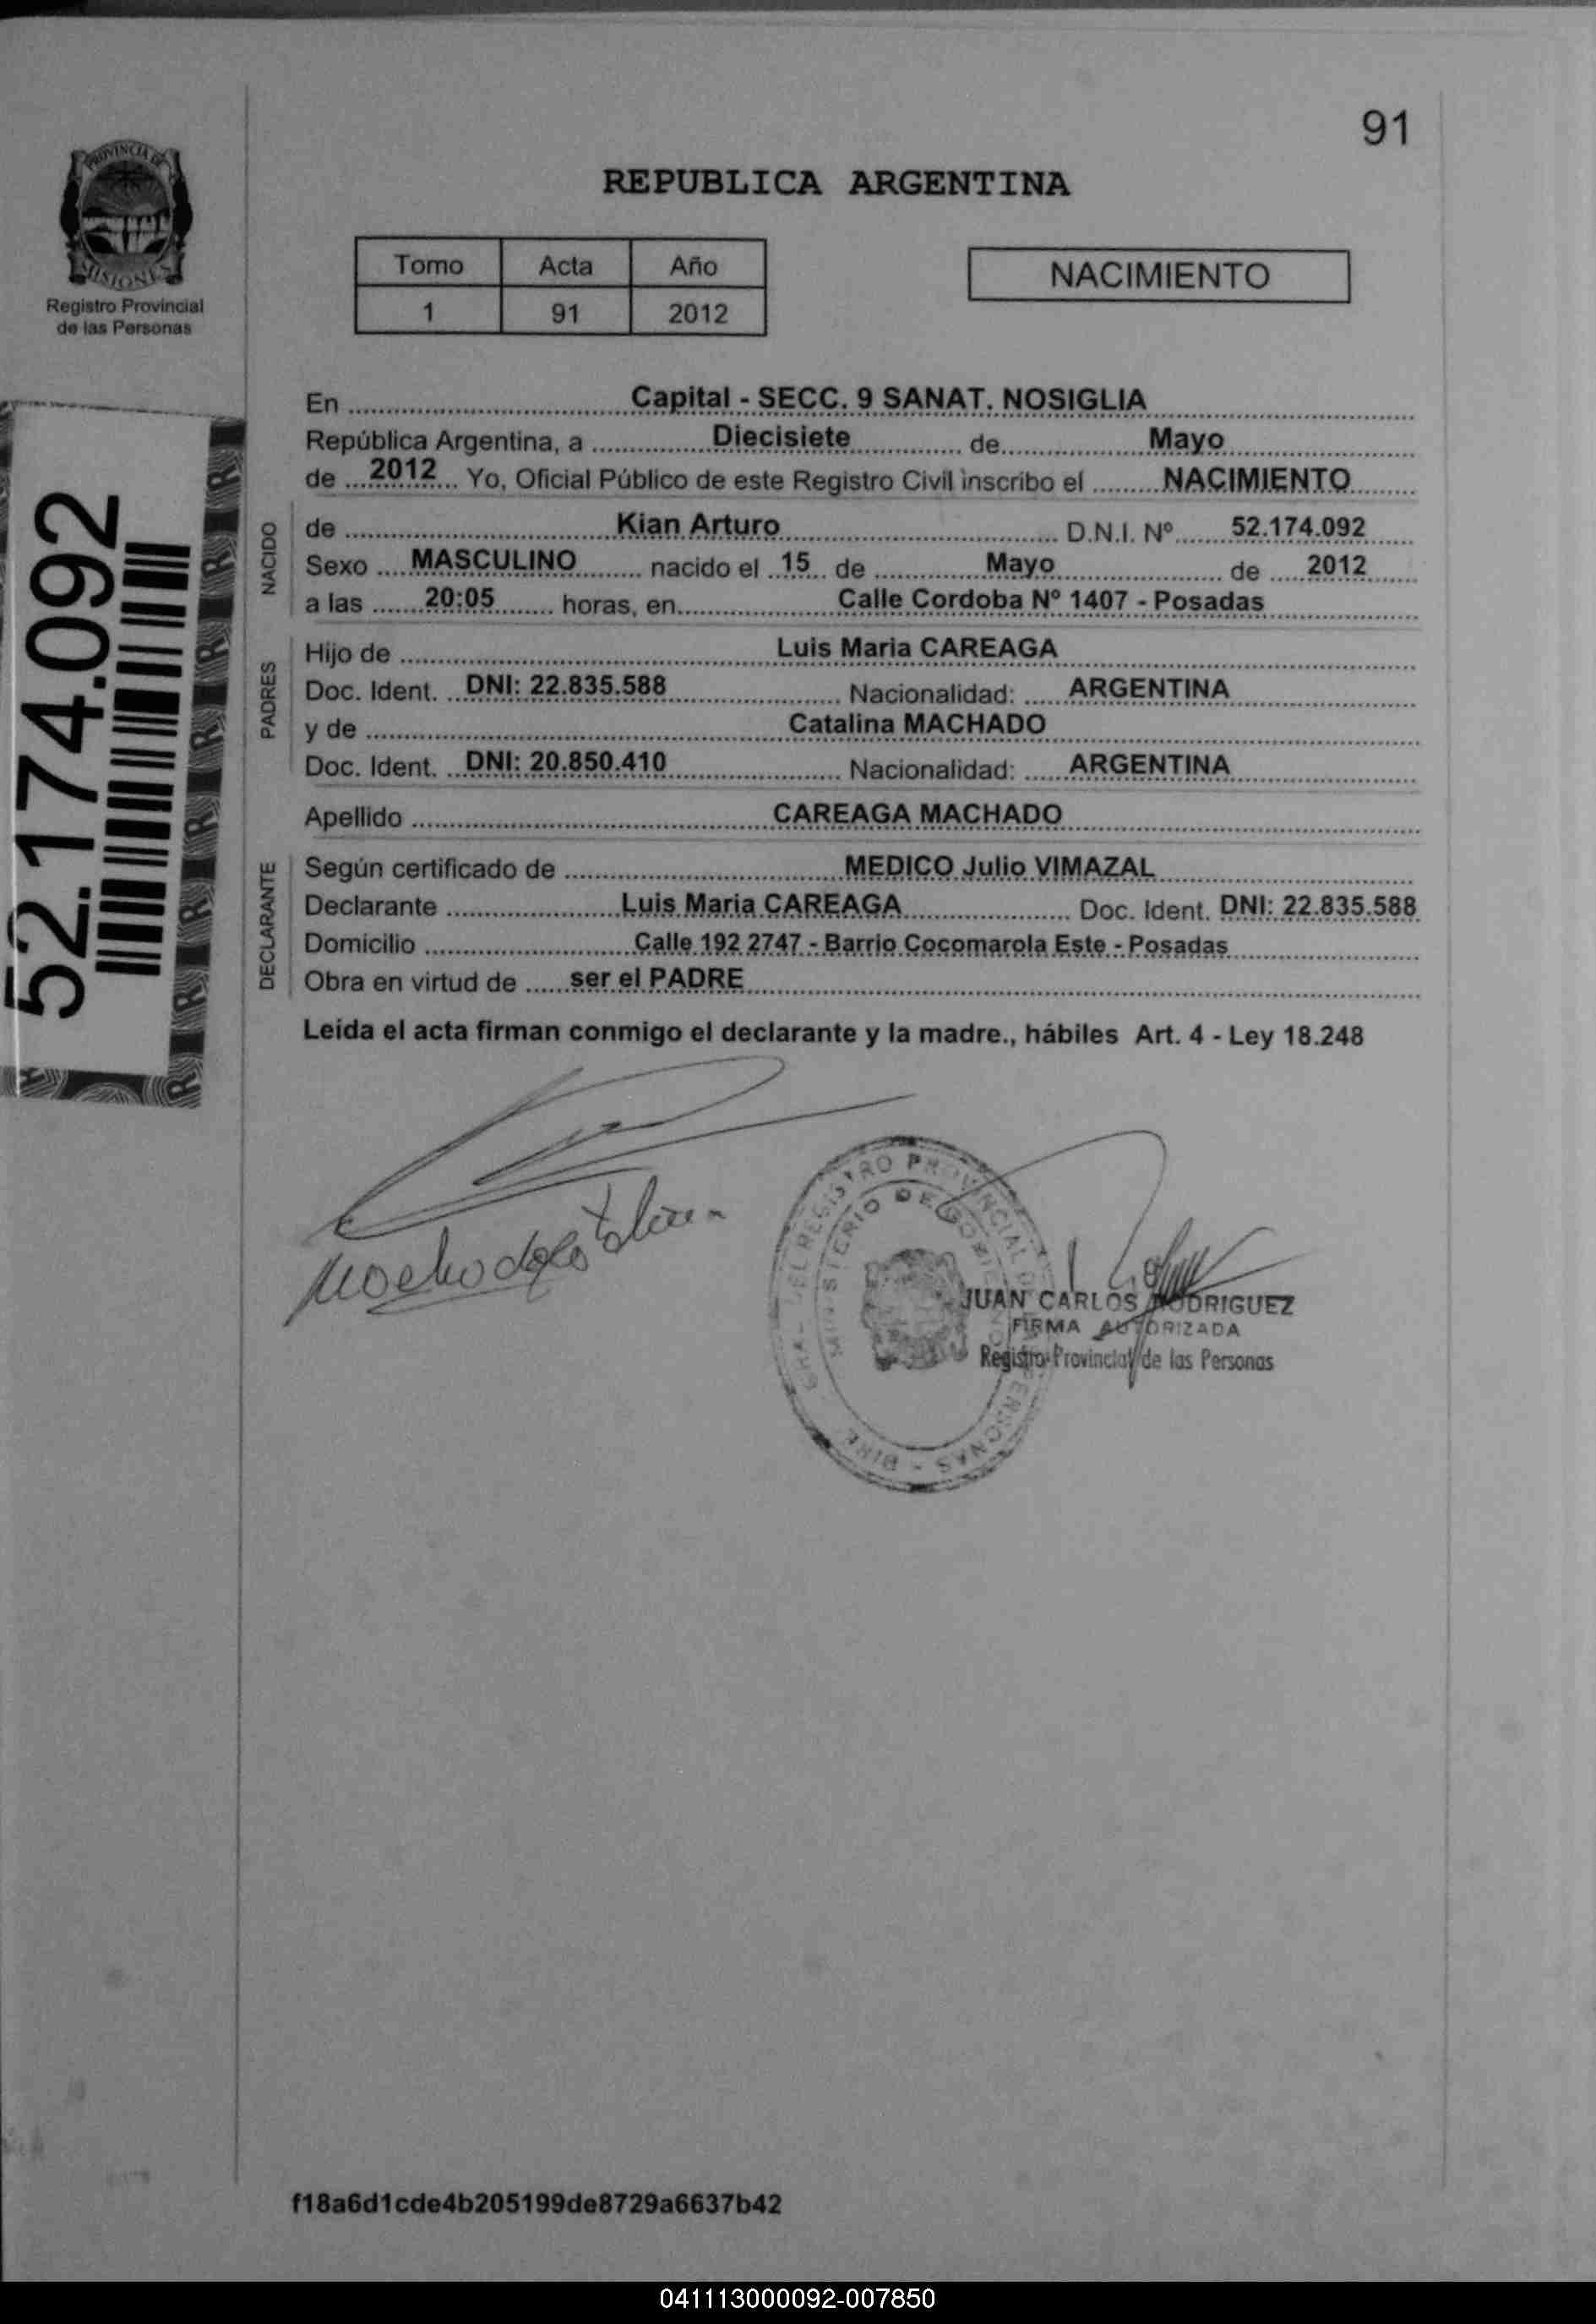 91
PROVINCIA DE
MISIONES
Registro Provincial
de las Personas
REPUBLICA ARGENTINA
Tomo Acta Año
1 91 2012
NACIMIENTO
52.174.092
En Capital - SECC. 9 SANAT. NOSIGLIA
República Argentina, a Diecisiete de Mayo
de 2012 Yo, Oficial Público de este Registro Civil inscribo el NACIMIENTO
NACIDO
de Kian Arturo D.N.I. Nº 52.174.092
Sexo MASCULINO nacido el 15 de Mayo de 2012
a las 20:05 horas, en Calle Cordoba Nº 1407 - Posadas
PADRES
Hijo de Luis Maria CAREAGA
Doc. Ident. DNI: 22.835.588 Nacionalidad: ARGENTINA
y de Catalina MACHADO
Doc. Ident. DNI: 20.850.410 Nacionalidad: ARGENTINA
Apellido CAREAGA MACHADO
DECLARANTE
Según certificado de MEDICO Julio VIMAZAL
Declarante Luis Maria CAREAGA Doc. Ident. DNI: 22.835.588
Domicilio Calle 192 2747 - Barrio Cocomarola Este - Posadas
Obra en virtud de ser el PADRE
Leída el acta firman conmigo el declarante y la madre., hábiles Art. 4 - Ley 18.248
JUAN CARLOS RODRIGUEZ
FIRMA AUTORIZADA
Registro Provincial de las Personas
f18a6d1cde4b205199de8729a6637b42
041113000092-007850